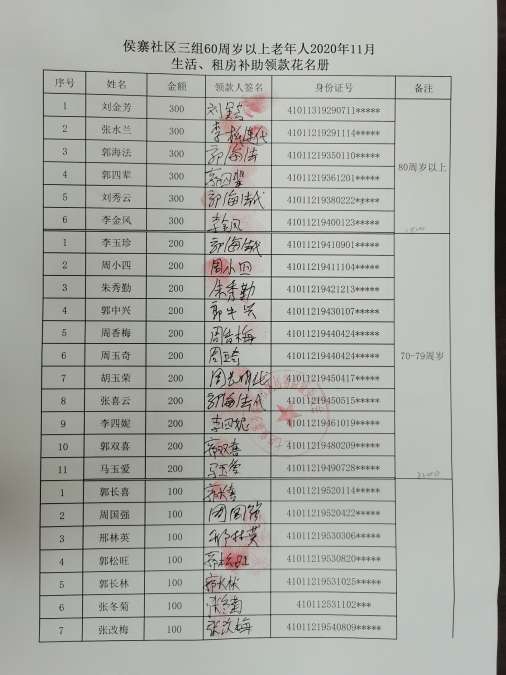 侯寨社区三组60周岁以上老年人2020年11月
生活、租房补助领款花名册
序号 姓名 金额 领款人签名 身份证号 备注
1 刘金芳 300 41011319290711*****
2 张水兰 300 41011219291114*****
3 郭海法 300 郭海法 41011219350110*****
4 郭四辈 300 郭四辈 41011219361201*****
80周岁以上
5 刘秀云 300 郭海法代 41011219380222*****
6 李金凤 300 李金凤 41011219400123*****
1 李玉珍 200 郭海法代 41011219410901*****
2 周小四 200 周小四 41011219411104*****
3 朱秀勤 200 朱秀勤 41011219421213*****
4 郭中兴 200 郭中兴 41011219430107*****
5 周香梅 200 周香梅 41011219440424*****
6 周玉奇 200 41011219440424*****
70-79周岁
7 胡玉荣 200 41011219450417*****
8 张喜云 200 郭海法代 41011219450515*****
9 李四妮 200 李四妮 41011219461019*****
10 郭双喜 200 郭双喜 41011219480209*****
11 马玉爱 200 马玉爱 41011219490728*****
1 郭长喜 100 郭长喜 41011219520114*****
2 周国强 100 周国强 41011219520422*****
3 邢林英 100 邢林英 41011219530306*****
4 郭松旺 100 郭松旺 41011219530820*****
5 郭长林 100 郭长林 41011219531025*****
6 张冬菊 100 张冬菊 410112531102***
7 张改梅 100 张改梅 41011219540809*****